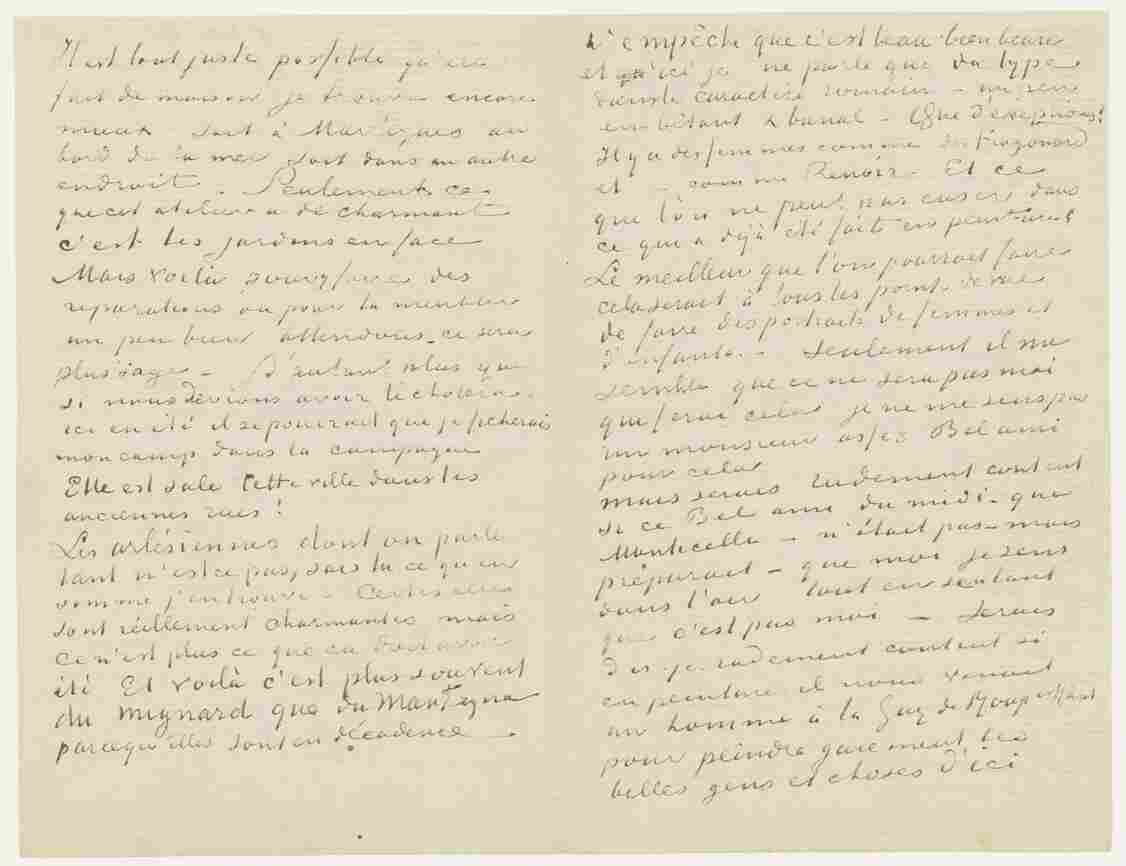 Il est tout juste possible qu'en
fait de maison je trouve encore
mieux soit à Martigues au
bord de la mer soit dans un autre
endroit. Seulement ce
que cet atelier a de charmant
c'est les jardins en face
Mais voilà pour y faire des
réparations ou pour la meubler
un peu bien attendons, ce sera
plus sage – D'autant plus que
si nous devions avoir le cholera
ici en été il se pourrait que je ficherais
mon camp dans la campagne
Elle est sale cette ville dans les
anciennes rues!
Les arlésiennes dont on parle
tant n'est ce pas, sais tu ce qu'en
somme j'en trouve. Certes elles
sont réellement charmantes mais
ce n'est plus ce que ca doit avoir
été Et voilà c'est plus souvent
du mignard que du Mantegna
parcequ'elles sont en décadence.
N'empêche que c'est beau bien beau
et qu'ici je ne parle que du type
dans le caractère romain – un peu
embêtant & banal – Que d'exceptions!
Il y a des femmes comme des Fragonard
et – comme Renoir. Et ce
que l'on ne peut pas caser dans
ce qui a déjà été fait en peinture
Le meilleur que l'on pourrait faire
cela serait à tous les points de vue
de faire des portraits de femmes et
d'enfants. – Seulement il me
semble que ce ne sera pas moi
qui ferai cela je ne me sens pas
un monsieur assez Bel ami
pour cela
mais serais rudement content
si ce Bel ami du midi que
Monticelli – n'était pas – mais
préparait – que moi je sens
dans l'air tout en sentant
que c'est pas moi – serais
dis je rudement content si
en peinture il nous venait
un homme à la Guy de Maupassant
pour peindre gaiement les
belles gens et choses d'ici